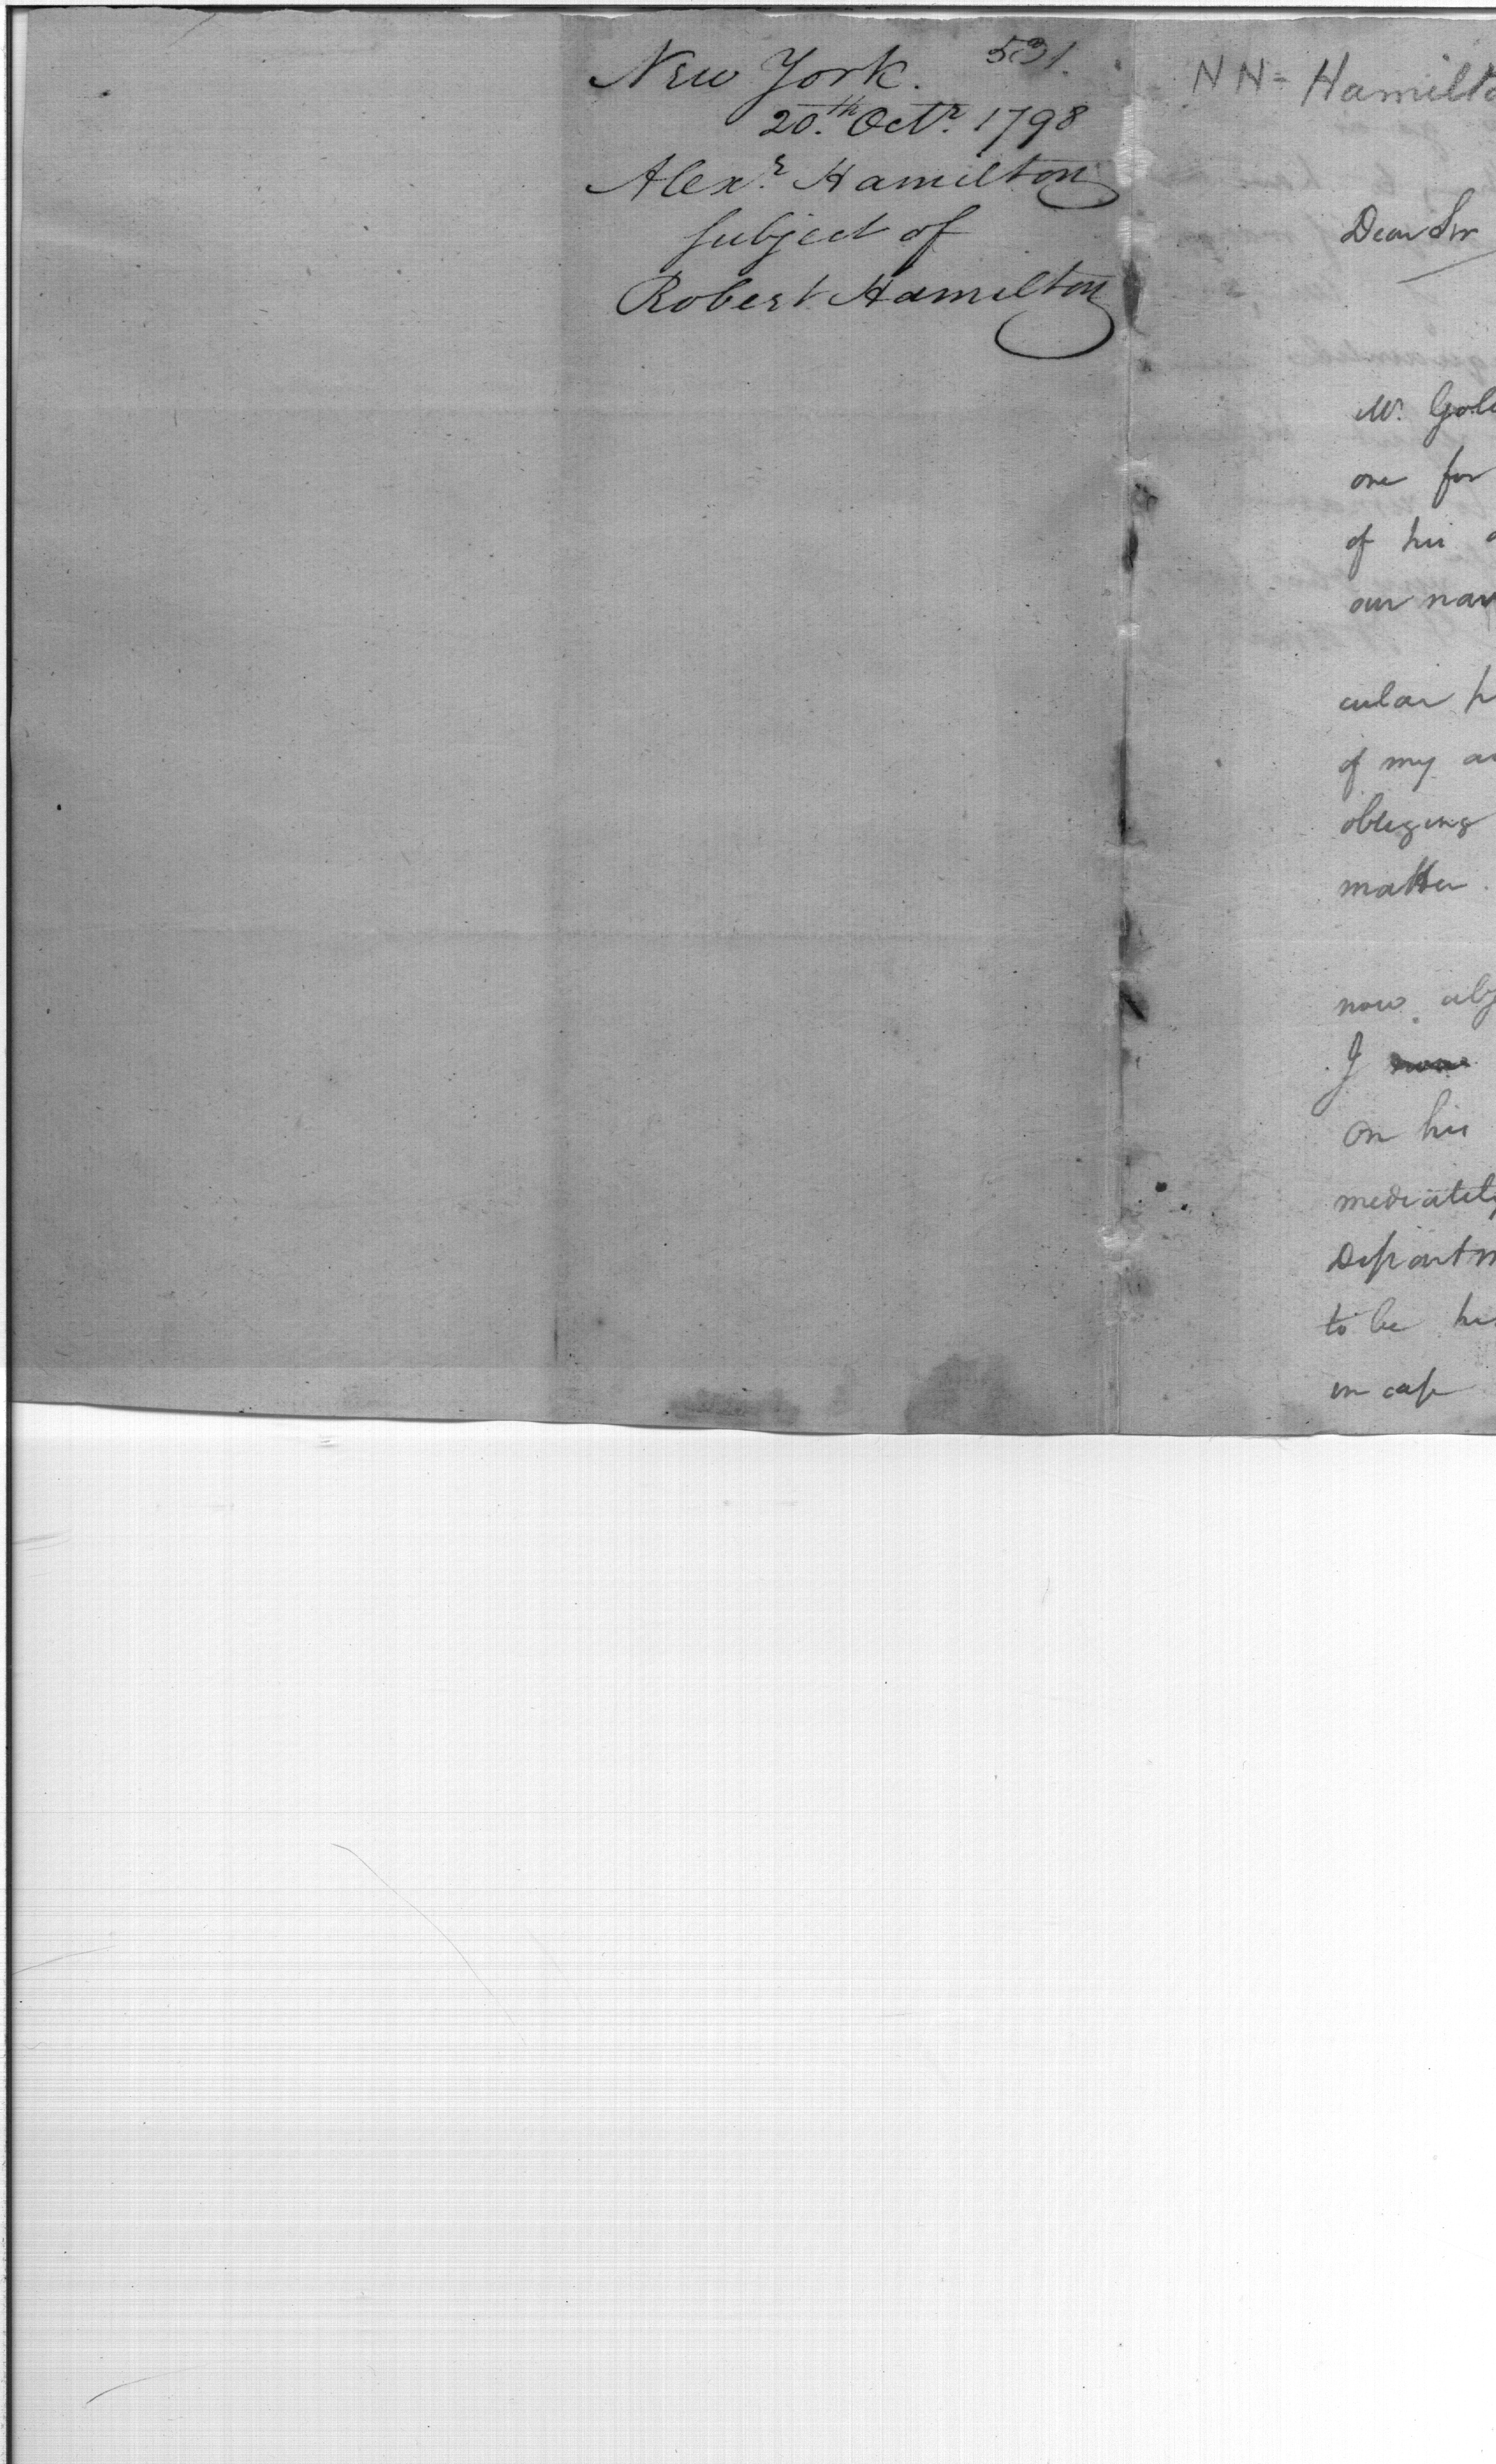 New York. 531.
20.th Octr. 1798
Alexr. Hamilton
subject of
Robert Hamilton
NN= Hamilto
Dear Sir
Mr. Gole
one for
of his
our nav
cular
of my
obliging
matter.
now
I
on his
mediately
Departm
to be
in case